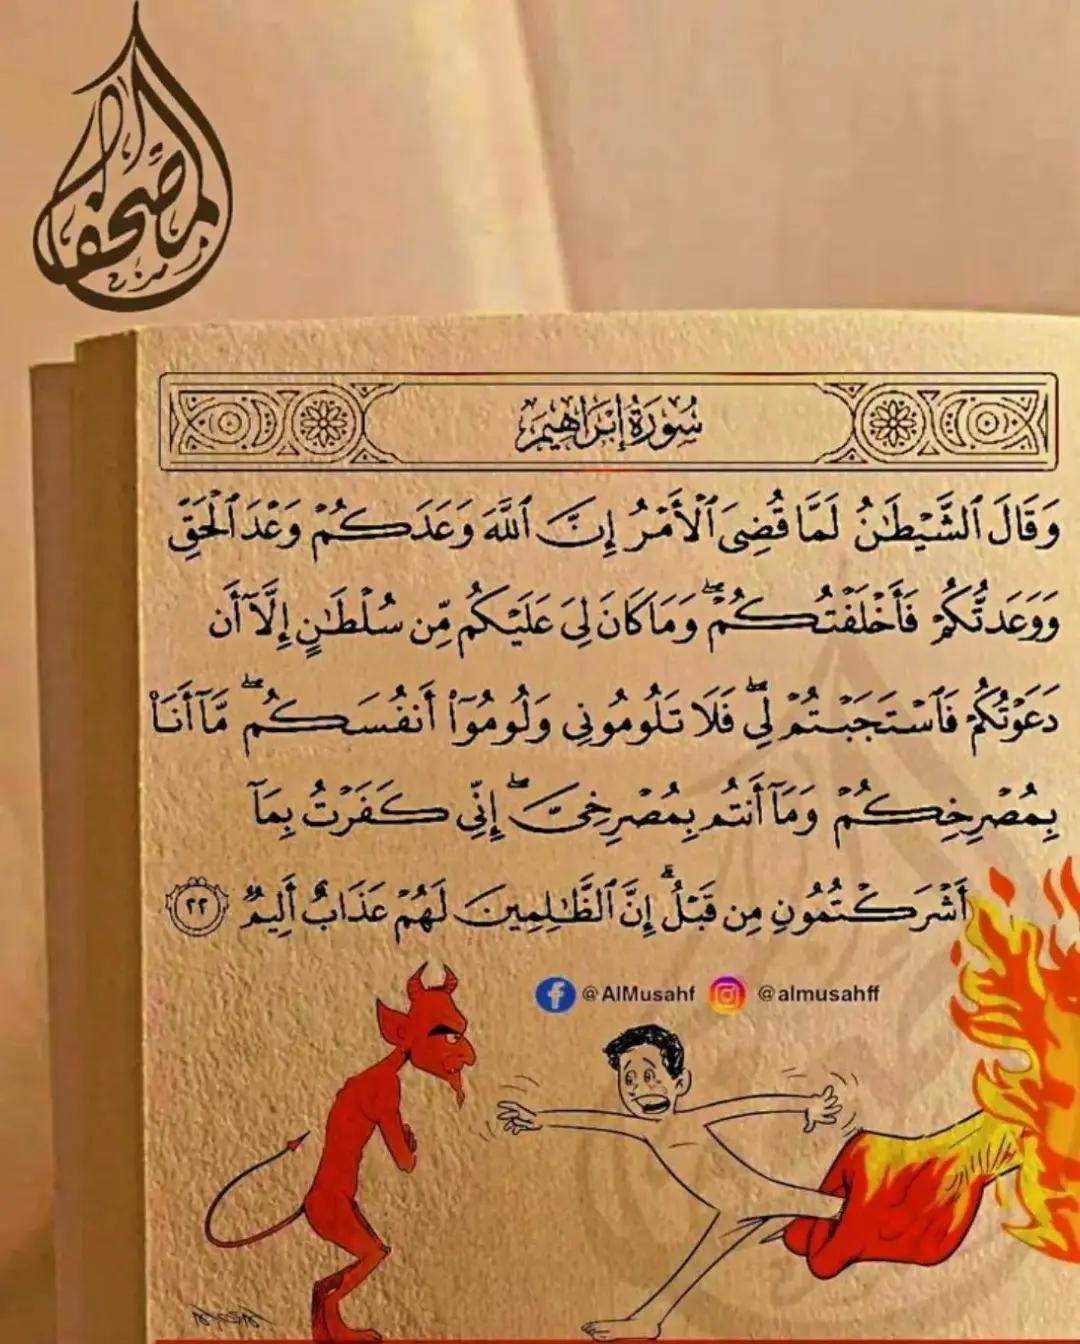 المصحف
سُورَةُ إِبْرَاهِيمَ
وَقَالَ ٱلشَّيْطَٰنُ لَمَّا قُضِىَ ٱلْأَمْرُ إِنَّ ٱللَّهَ وَعَدَكُمْ وَعْدَ ٱلْحَقِّ
وَوَعَدتُّكُمْ فَأَخْلَفْتُكُمْ ۖ وَمَا كَانَ لِىَ عَلَيْكُم مِّن سُلْطَٰنٍ إِلَّآ أَن
دَعَوْتُكُمْ فَٱسْتَجَبْتُمْ لِى ۖ فَلَا تَلُومُونِى وَلُومُوٓا۟ أَنفُسَكُم ۖ مَّآ أَنَا۠
بِمُصْرِخِكُمْ وَمَآ أَنتُم بِمُصْرِخِىَّ ۖ إِنِّى كَفَرْتُ بِمَآ
أَشْرَكْتُمُونِ مِن قَبْلُ ۗ إِنَّ ٱلظَّٰلِمِينَ لَهُمْ عَذَابٌ أَلِيمٌ ٢٢
@AlMusahf @almusahff